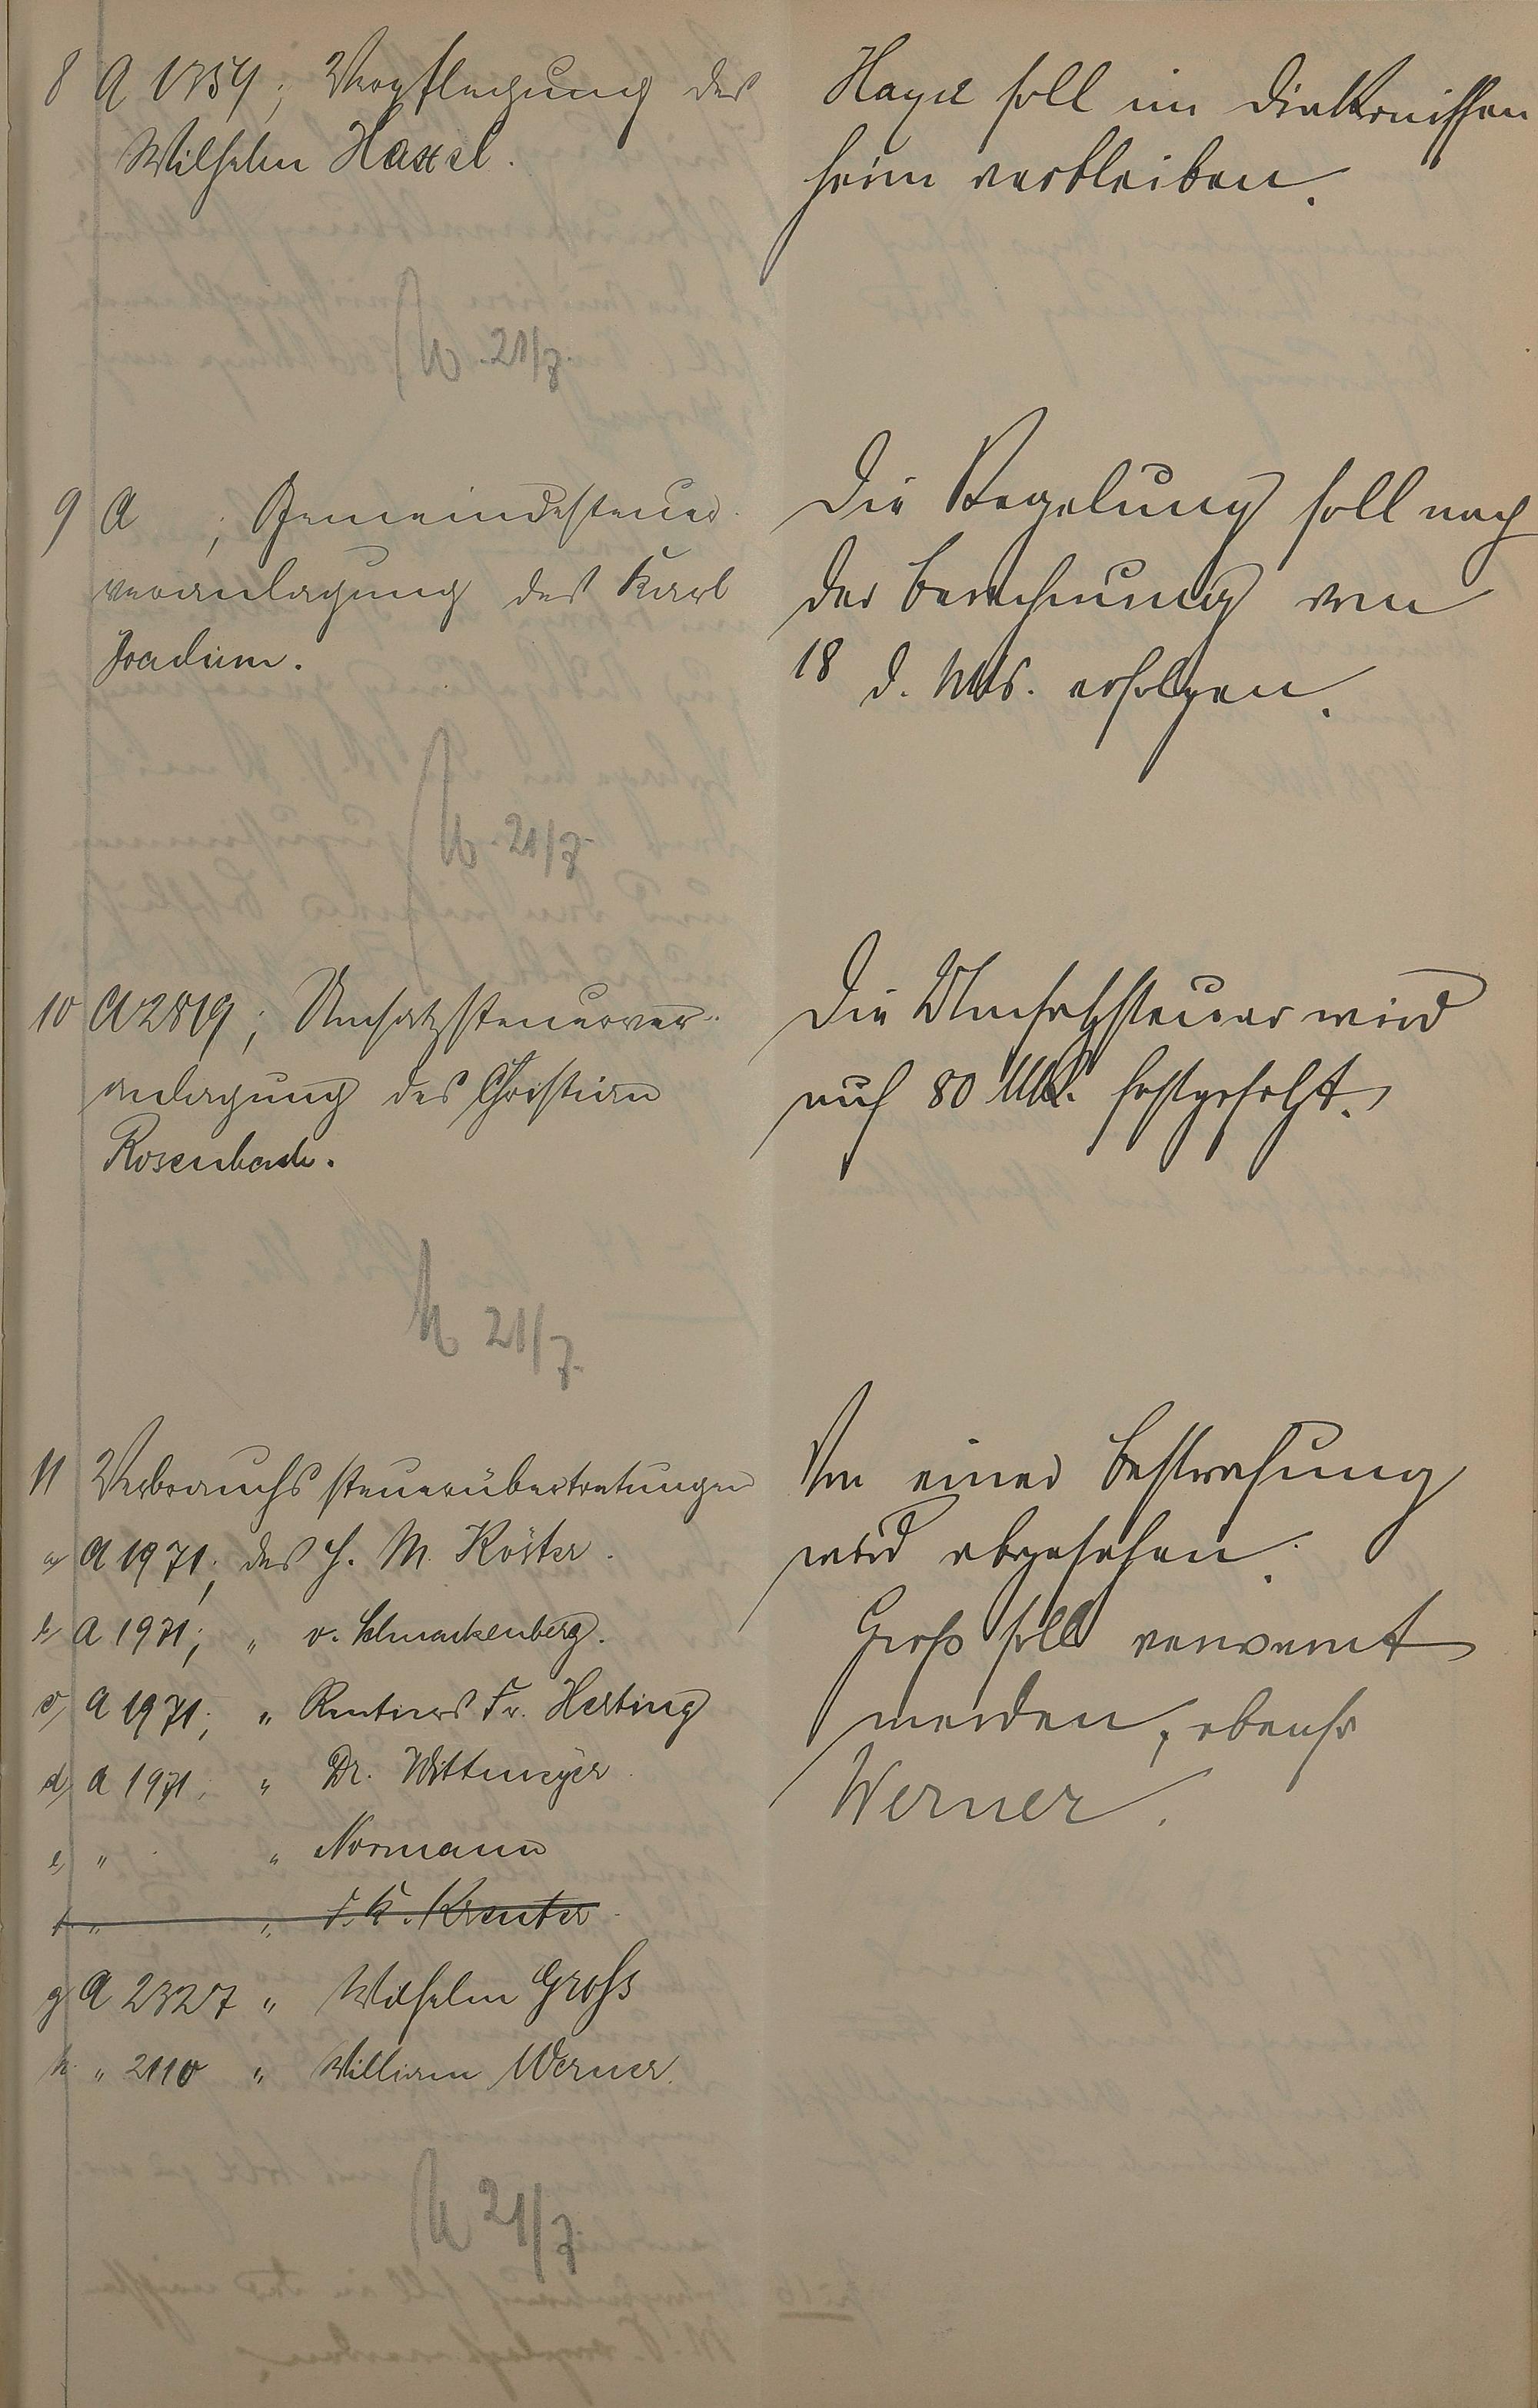 8 A 1354; Verpflegung des
Wilhelm Haxel.
Haxel soll im Diakonissen
heim verbleiben.
21/7.
9 A ; Gemeindesteuer
veranlagung des Karl
Joachim.
Die Regelung soll nach
der Berechnung vom
18 d. Mts. erfolgen.
21/7.
10 A 2819; Umsatzsteuerver-
anlagung des Christian
Rosenbach.
Die Umsatzsteuer wird
auf 80 Mk. festgesetzt.
21/7.
11 Verbrauchssteuerübertretungen
a) A 1971; des H. M. Köster.
b) A 1971; " v. Schmackenberg.
c) A 1971; " Rentners Fr. Herting
d) A 1971; " Dr. Wittmeyer
e) " " Normann
f. " " F. K. Kreuter
g A 2327 " Wilhelm Groß
h. " 2110 " William Werner.
Von einer Bestrafung
wird abgesehen.
Groß soll verwarnt
werden, ebenso
Werner.
21/7.